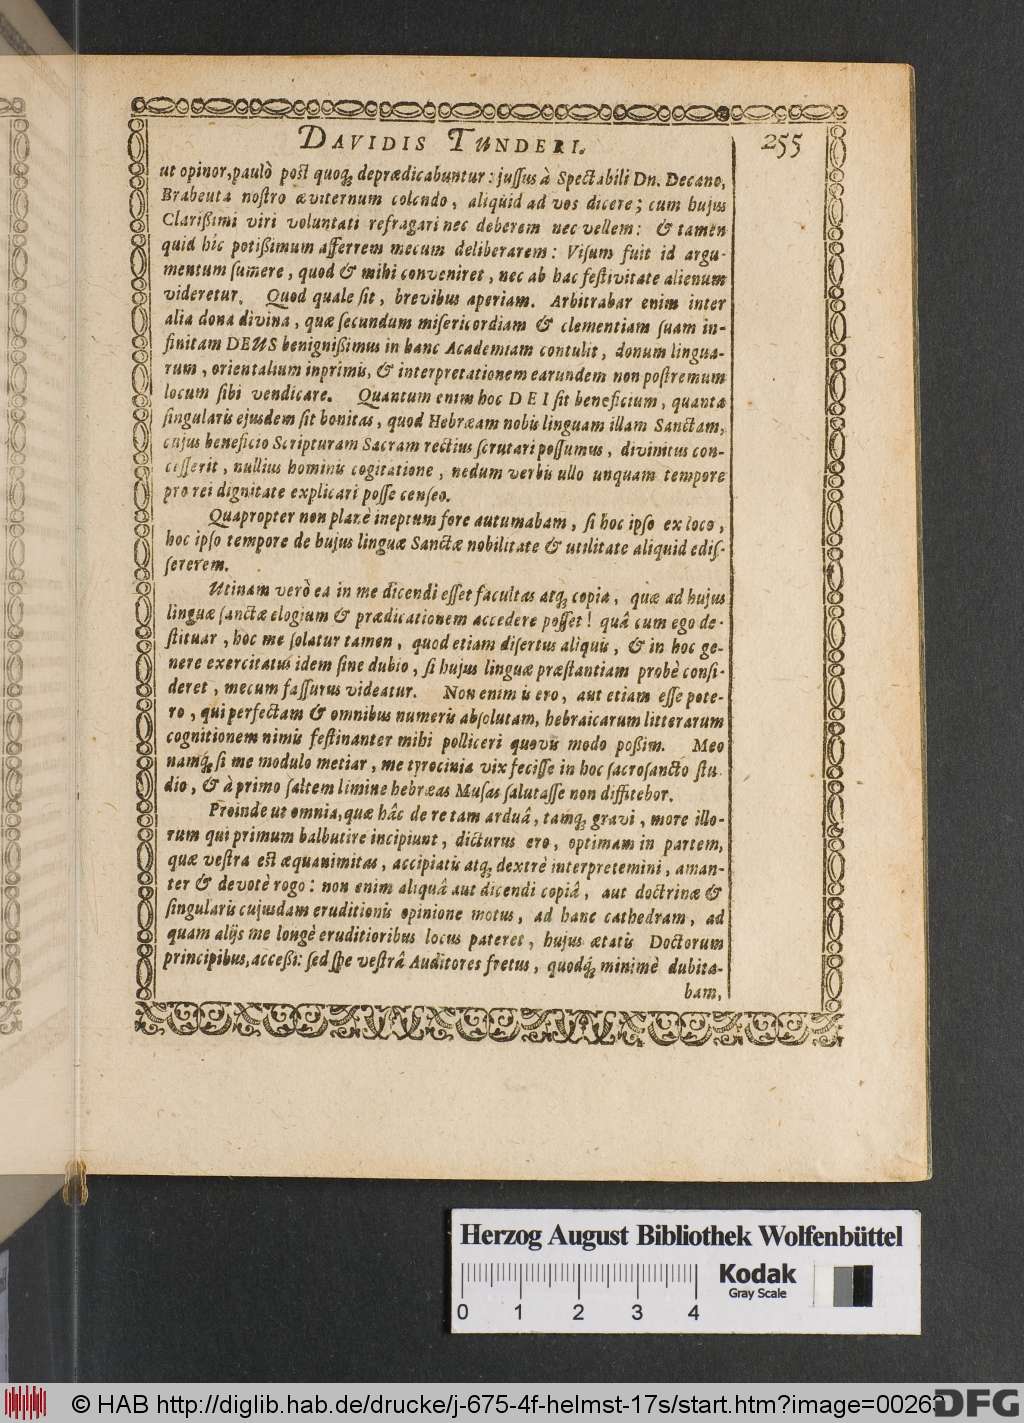 DAVIDIS TUNDERI.
255
ut opinor, paulò post quoq; deprædicabuntur: jussus à Spectabili Dn. Decano,
Brabeuta nostro æviternum colendo, aliquid ad vos dicere; cum hujus
Clarißimi viri voluntati refragari nec deberem nec vellem: & tamen
quid hîc potißimum afferrem mecum deliberarem: Visum fuit id argu-
mentum sumere, quod & mihi conveniret, nec ab hac festivitate alienum
videretur. Quod quale sit, brevibus aperiam. Arbitrabar enim inter
alia dona divina, quæ secundum misericordiam & clementiam suam in-
finitam DEUS benignißimus in hanc Academiam contulit, donum lingua-
rum, orientalium inprimis, & interpretationem earundem non postremum
locum sibi vendicare. Quantum enim hoc DEI sit beneficium, quantæ
singularis ejusdem sit bonitas, quod Hebræam nobis linguam illam Sanctam,
cujus beneficio Scripturam Sacram rectius scrutari possumus, divinitus con-
cesserit, nullius hominis cogitatione, nedum verbis ullo unquam tempore
pro rei dignitate explicari posse censeo.
Quapropter non planè ineptum fore autumabam, si hoc ipso ex loco,
hoc ipso tempore de hujus linguæ Sanctæ nobilitate & utilitate aliquid edis-
sererem.
Utinam verò ea in me dicendi esset facultas atq; copia, quæ ad hujus
linguæ sanctæ elogium & prædicationem accedere posset! quâ cum ego de-
stituar, hoc me solatur tamen, quod etiam disertus aliquis, & in hoc ge-
nere exercitatus idem sine dubio, si hujus linguæ præstantiam probè consi-
deret, mecum fassurus videatur. Non enim is ero, aut etiam esse pote-
ro, qui perfectam & omnibus numeris absolutam, hebraicarum litterarum
cognitionem nimis festinanter mihi polliceri quovis modo poßim. Meo
namq; si me modulo metiar, me tyrocinia vix fecisse in hoc sacrosancto stu-
dio, & à primo saltem limine hebræas Musas salutasse non diffitebor.
Proinde ut omnia, quæ hâc de re tam arduâ, tamq; gravi, more illo-
rum qui primum balbutire incipiunt, dicturus ero, optimam in partem,
quæ vestra est æquanimitas, accipiatis atq; dextrè interpretemini, aman-
ter & devotè rogo: non enim aliquâ aut dicendi copiâ, aut doctrinæ &
singularis cujusdam eruditionis opinione motus, ad hanc cathedram, ad
quam alijs me longè eruditioribus locus pateret, hujus ætatis Doctorum
principibus, acceßi: sed spe vestrâ Auditores fretus, quodq; minimè dubita-
bam,
Herzog August Bibliothek Wolfenbüttel
Kodak
Gray Scale
0 1 2 3 4
© HAB http://diglib.hab.de/drucke/j-675-4f-helmst-17s/start.htm?image=00263
DFG